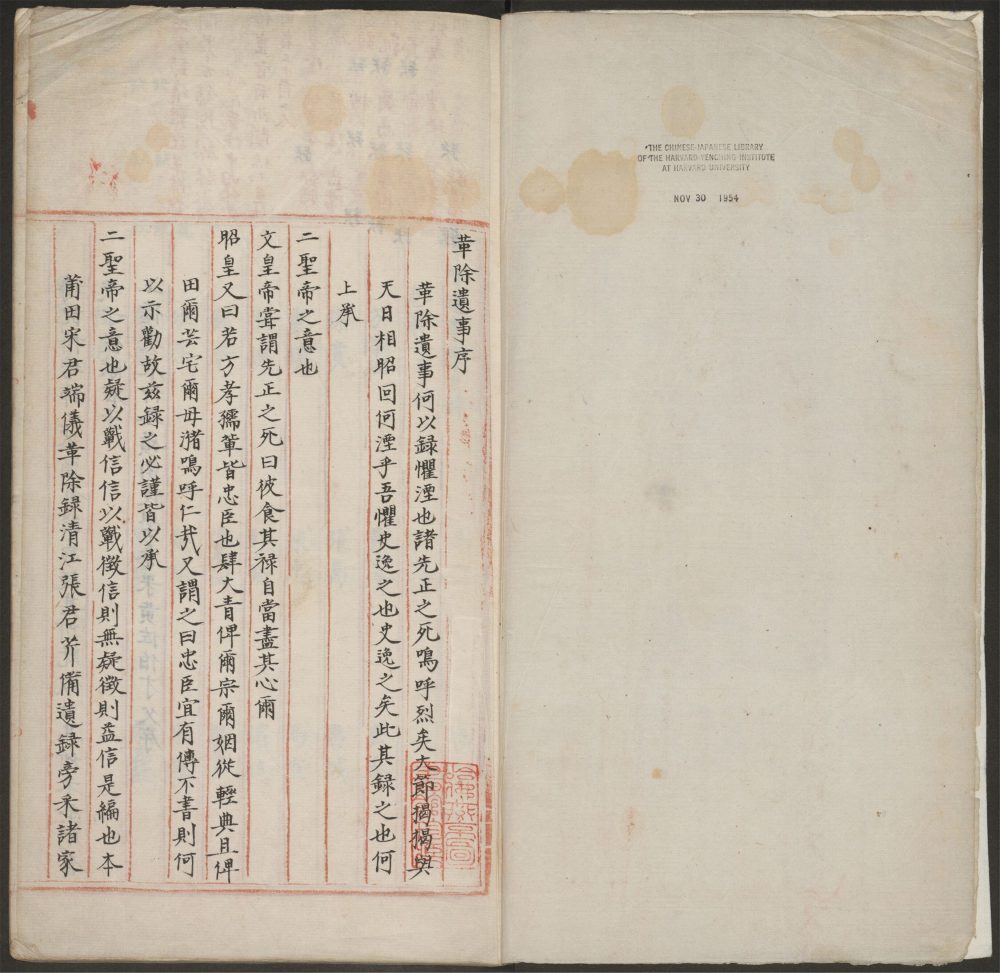 革除遺事序
革除遺事何以録懼湮也諸先正之死嗚呼烈矣大節揭揭與
天日相昭回何湮乎吾懼史逸之也史逸之矣此其録之也何
上承
二聖帝之意也
文皇帝嘗謂先正之死曰彼食其禄自當盡其心爾
昭皇又曰若方孝孺軰皆忠臣也肆大眚俾爾宗爾姻從輕典且俾
田爾芸宅爾毋瀦嗚呼仁㢤又謂之曰忠臣宜有傳不書則何
以示勸故兹録之必謹皆以承
二聖帝之意也疑以戰信信以戰徴信則無疑徴則益信是編也本
莆田宋君端儀革除録清江張君芹備遺録旁釆諸家
THE CHINESE-JAPANESE LIBRARY
OF THE HARVARD-YENCHING INSTITUTE
AT HARVARD UNIVERSITY
NOV 30 1954